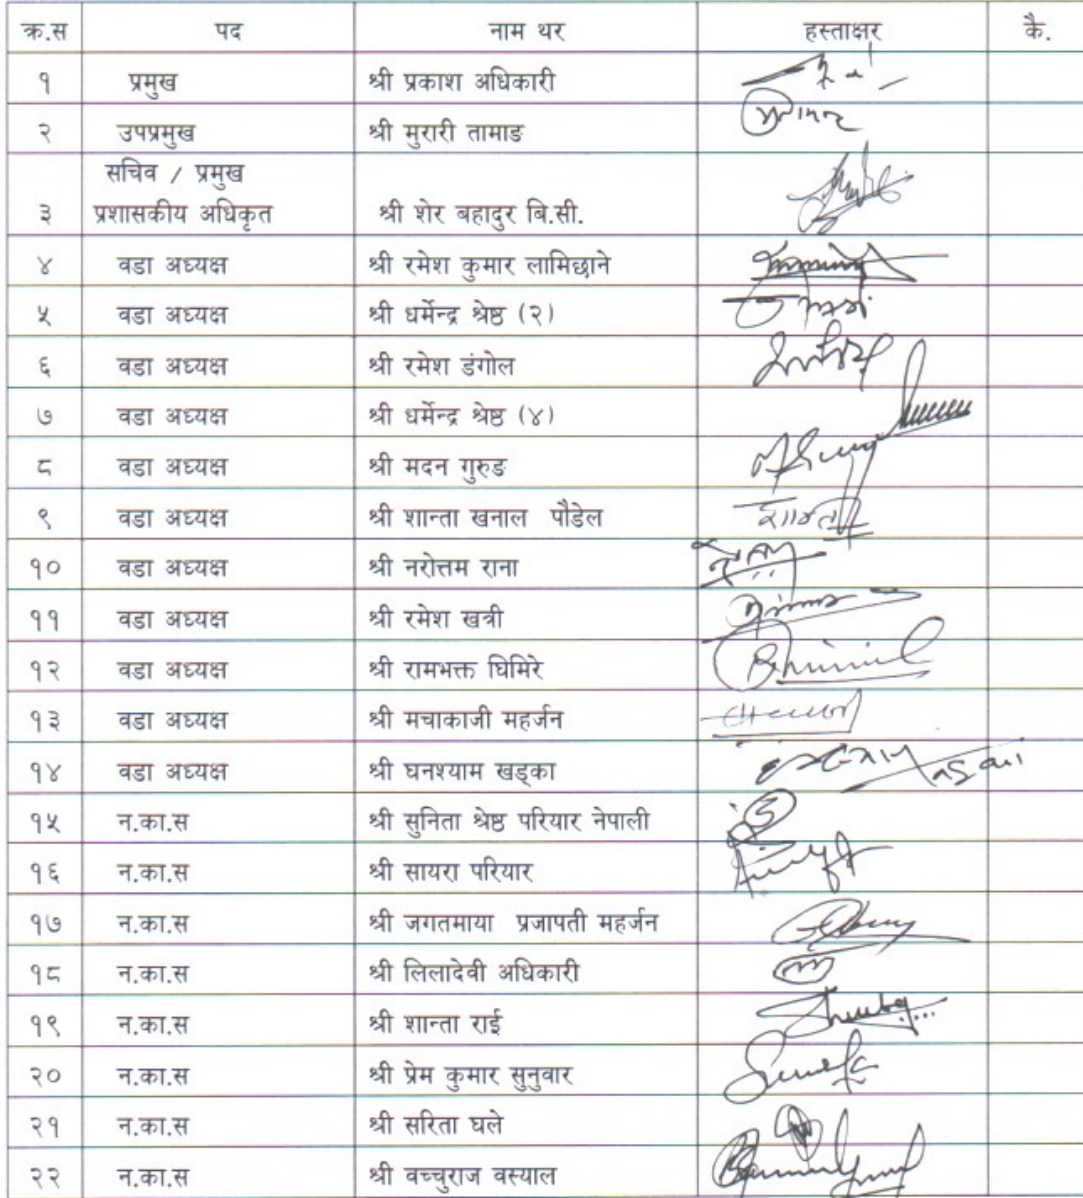 क्र.स पद नाम थर हस्ताक्षर कै.
१ प्रमुख श्री प्रकाश अधिकारी
२ उपप्रमुख श्री मुरारी तामाङ
सचिव / प्रमुख
३ प्रशासकीय अधिकृत श्री शेर बहादुर बि.सी.
४ वडा अध्यक्ष श्री रमेश कुमार लामिछाने
५ वडा अध्यक्ष श्री धर्मेन्द्र श्रेष्ठ (२)
६ वडा अध्यक्ष श्री रमेश डंगोल
७ वडा अध्यक्ष श्री धर्मेन्द्र श्रेष्ठ (४)
८ वडा अध्यक्ष श्री मदन गुरुङ
९ वडा अध्यक्ष श्री शान्ता खनाल पौडेल
१० वडा अध्यक्ष श्री नरोत्तम राना
११ वडा अध्यक्ष श्री रमेश खत्री
१२ वडा अध्यक्ष श्री रामभक्त घिमिरे
१३ वडा अध्यक्ष श्री मचाकाजी महर्जन
१४ वडा अध्यक्ष श्री घनश्याम खड्का
१५ न.का.स श्री सुनिता श्रेष्ठ परियार नेपाली
१६ न.का.स श्री सायरा परियार
१७ न.का.स श्री जगतमाया प्रजापती महर्जन
१८ न.का.स श्री लिलादेवी अधिकारी
१९ न.का.स श्री शान्ता राई
२० न.का.स श्री प्रेम कुमार सुनुवार
२१ न.का.स श्री सरिता घले
२२ न.का.स श्री वच्चुराज वस्याल